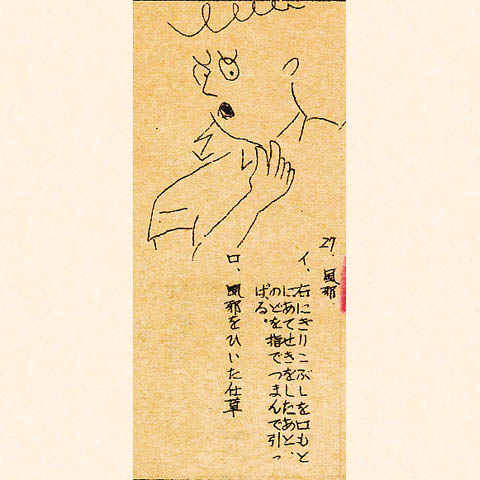 27. 風邪
イ、右にぎりこぶしを口もと
にあてせきをしたあと、
のどを指でつまんで引っ
ぱる。
ロ、風邪をひいた仕草